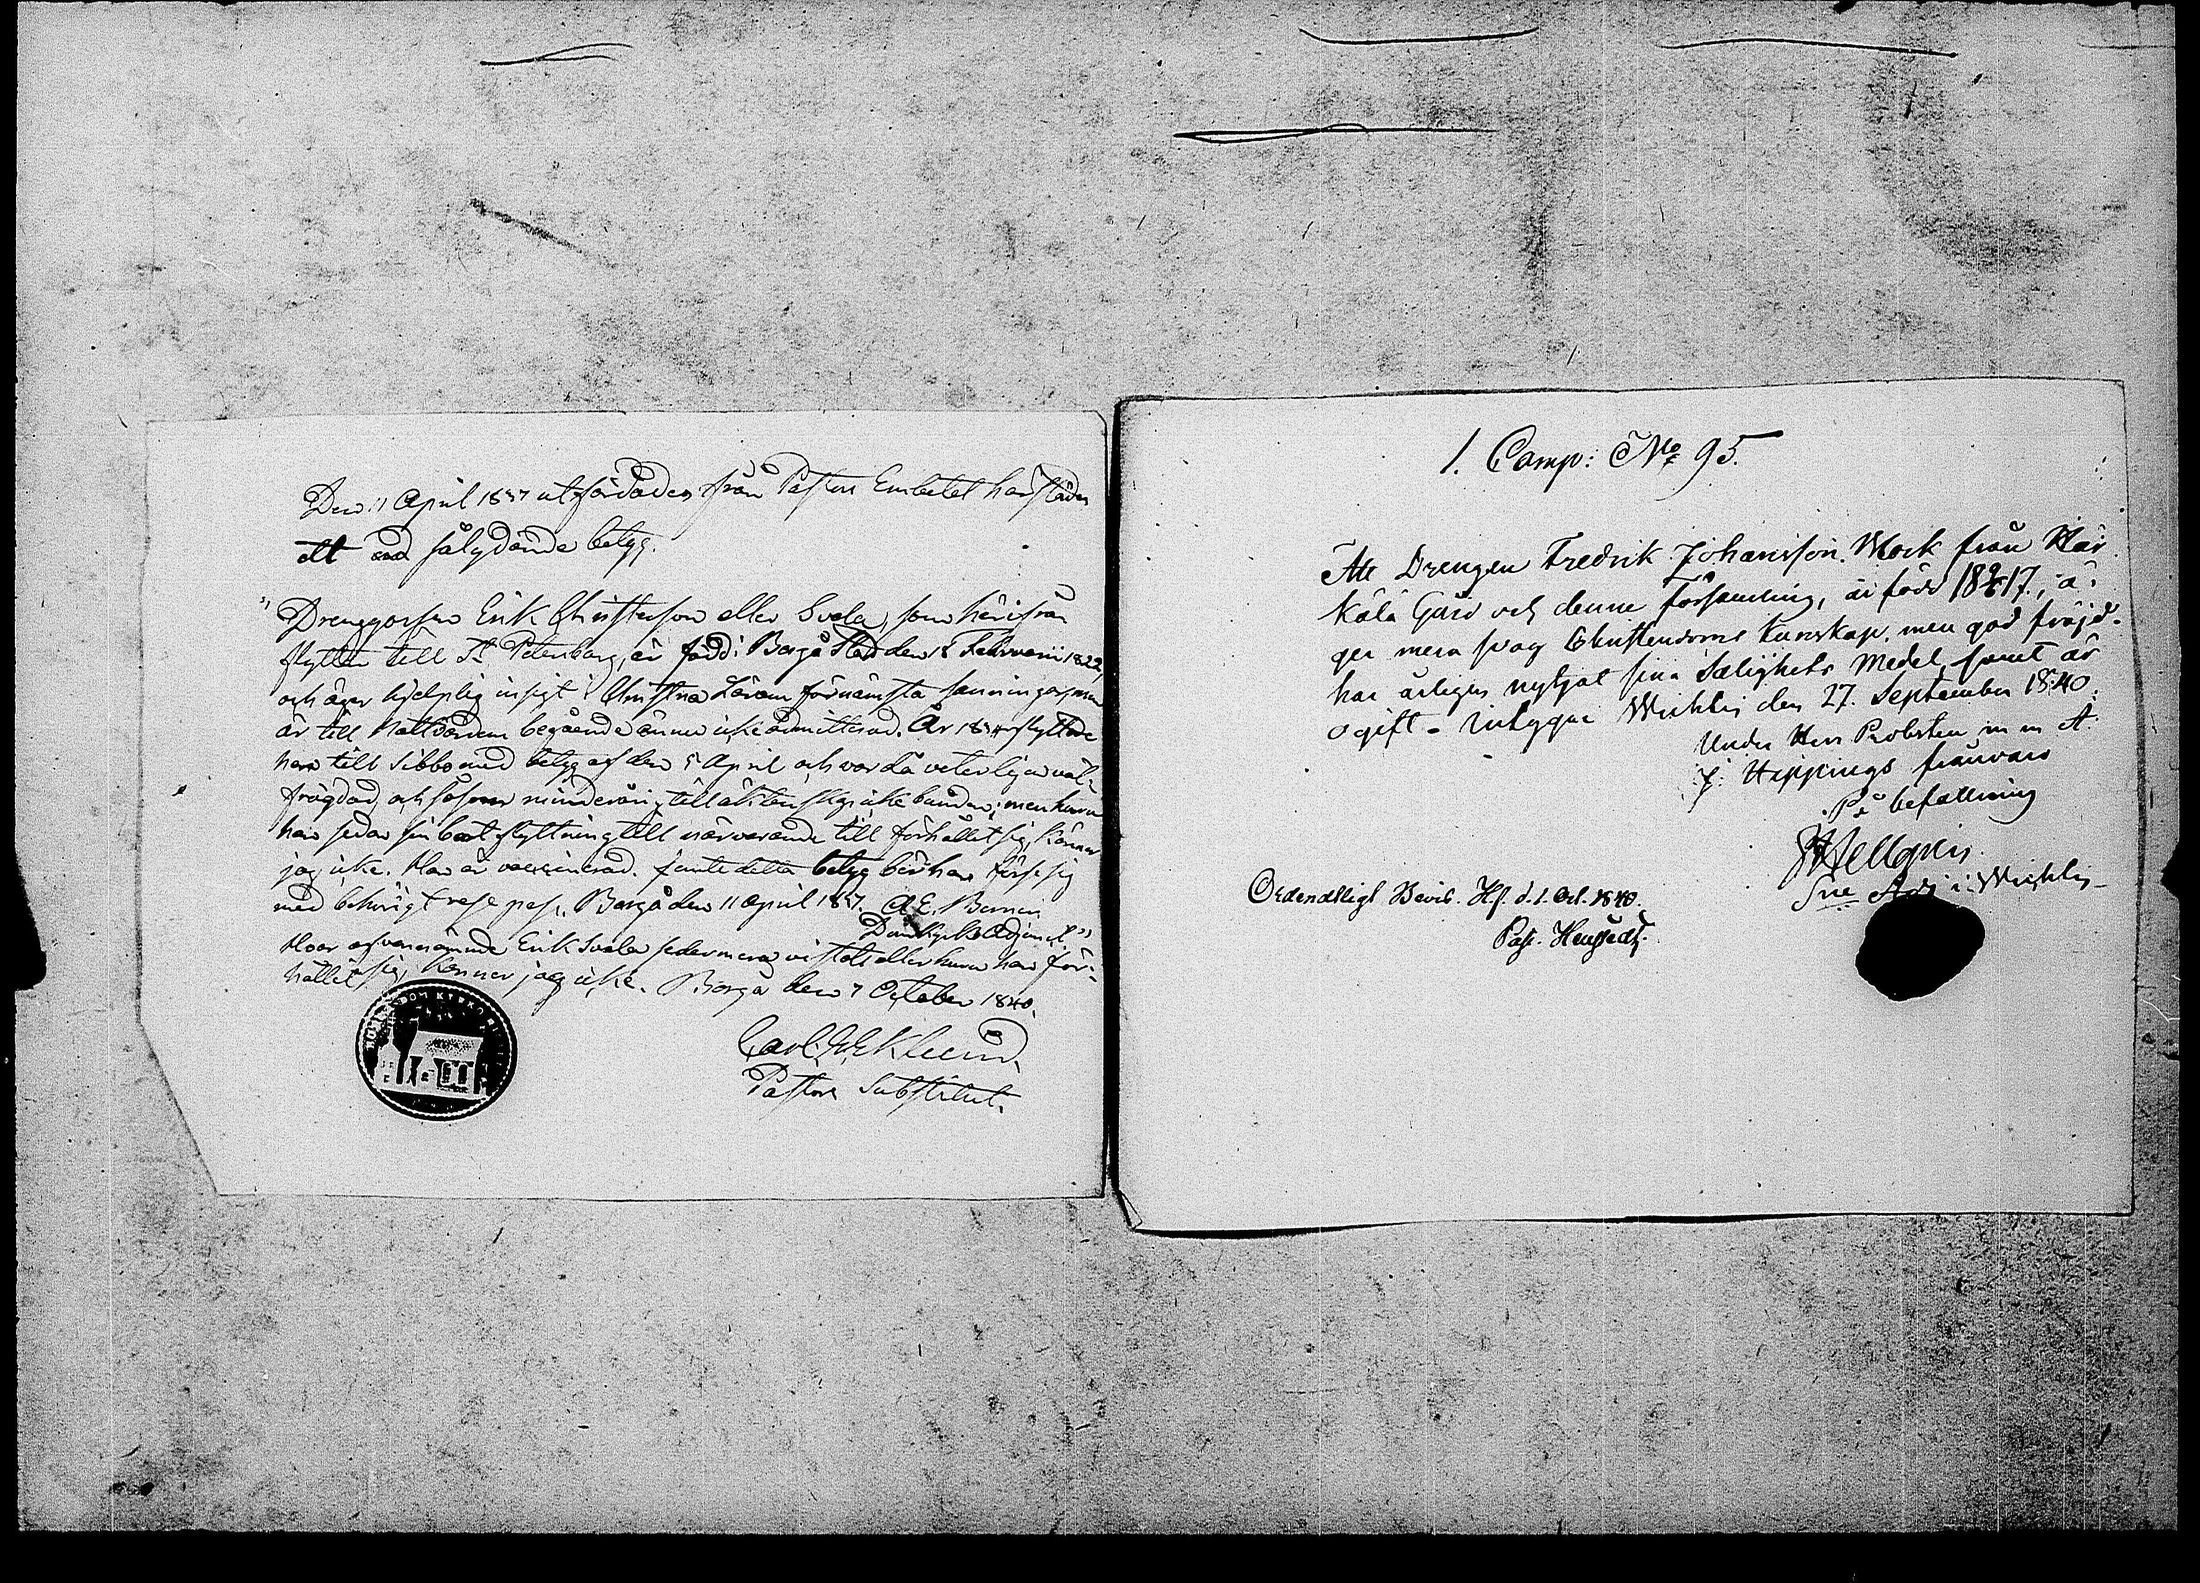 Den 11 April 1837 utfärdades från Pastors Embetet härstädes
ett sålydande betyg.
"Drenggossen Erik Christersson eller Svala, som härifrån
flyttar till St Petersburg, är född i Borgå Stad den 18 Februarii 1822,
och äger hjelplig insigt i Christna Lärans förnämsta sanningar, men
är till Nattvardens begående ännu icke admitterad. År 1834 flyttade
han till Sibbo med betyg af den 5 April och var då veterligen väl-
frägdad, och såsom minderårig till äktenskap icke bunden; men huru
han sedan sin bortflyttning till närvarande tid förhållit sig, känner
jag icke. Han är vaccinerad. Jemte detta betyg bör han förse sig
med behörigt respass. Borgå den 11 April 1837. A. E.
Domkyrko Adjunct."
Hvar ofvannämnde Erik Svala sedermera vistats eller huru han för-
hållit sig, känner jag icke. Borgå den 7 October 1840.
Carl Eklund,
Pastors Substitut.
1. Comp: No 95.
Att Drengen Fredrik Johansson Mork från Här
källa Gård och denne Församling, är född 1817, ä-
ger mera svag Christendoms kunskap, men god fräjd-
har årligen nyttjat sina Salighets Medel, samt är
ogift - intygar Wichtis den 27. September 1840.
Under Herr Probsten m m A.
J. Hippings frånvaro
På befallning
Hellgren
Sne Adj. i Wichtis
Ordendtligt Bevis. Hf. d. 1. Oct. 1840.
Past.